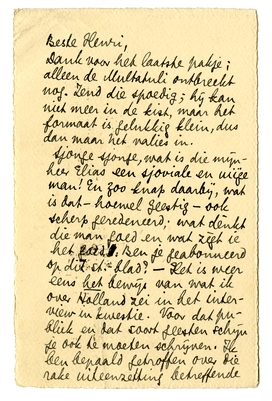 Beste Henri,
Dank voor het laatste pakje;
alleen de Multatuli ontbreekt
nog. Zend die spoedig; hij kan
niet meer in de kist, maar het
formaat is gelukkig klein, dus
dan maar het valies in.
Sjonge sjonge, wat is die mijn-
heer Elias een sjoviale en wijze
man! En zoo knap daarbij, wat
is dat – hoewel geestig – ook
scherp geredeneerd; wat denkt
die man goed en wat ziet ie
het goed! Ben je geabonneerd
op dit blad? – Het is weer
eens het bewijs van wat ik
over Holland zei in het inter-
view in kwestie. Voor dat pu-
bliek en dat soort geesten schijn
je ook te moeten schrijven. Ik
ben bepaald getroffen over die
rake uiteenzetting betreffende